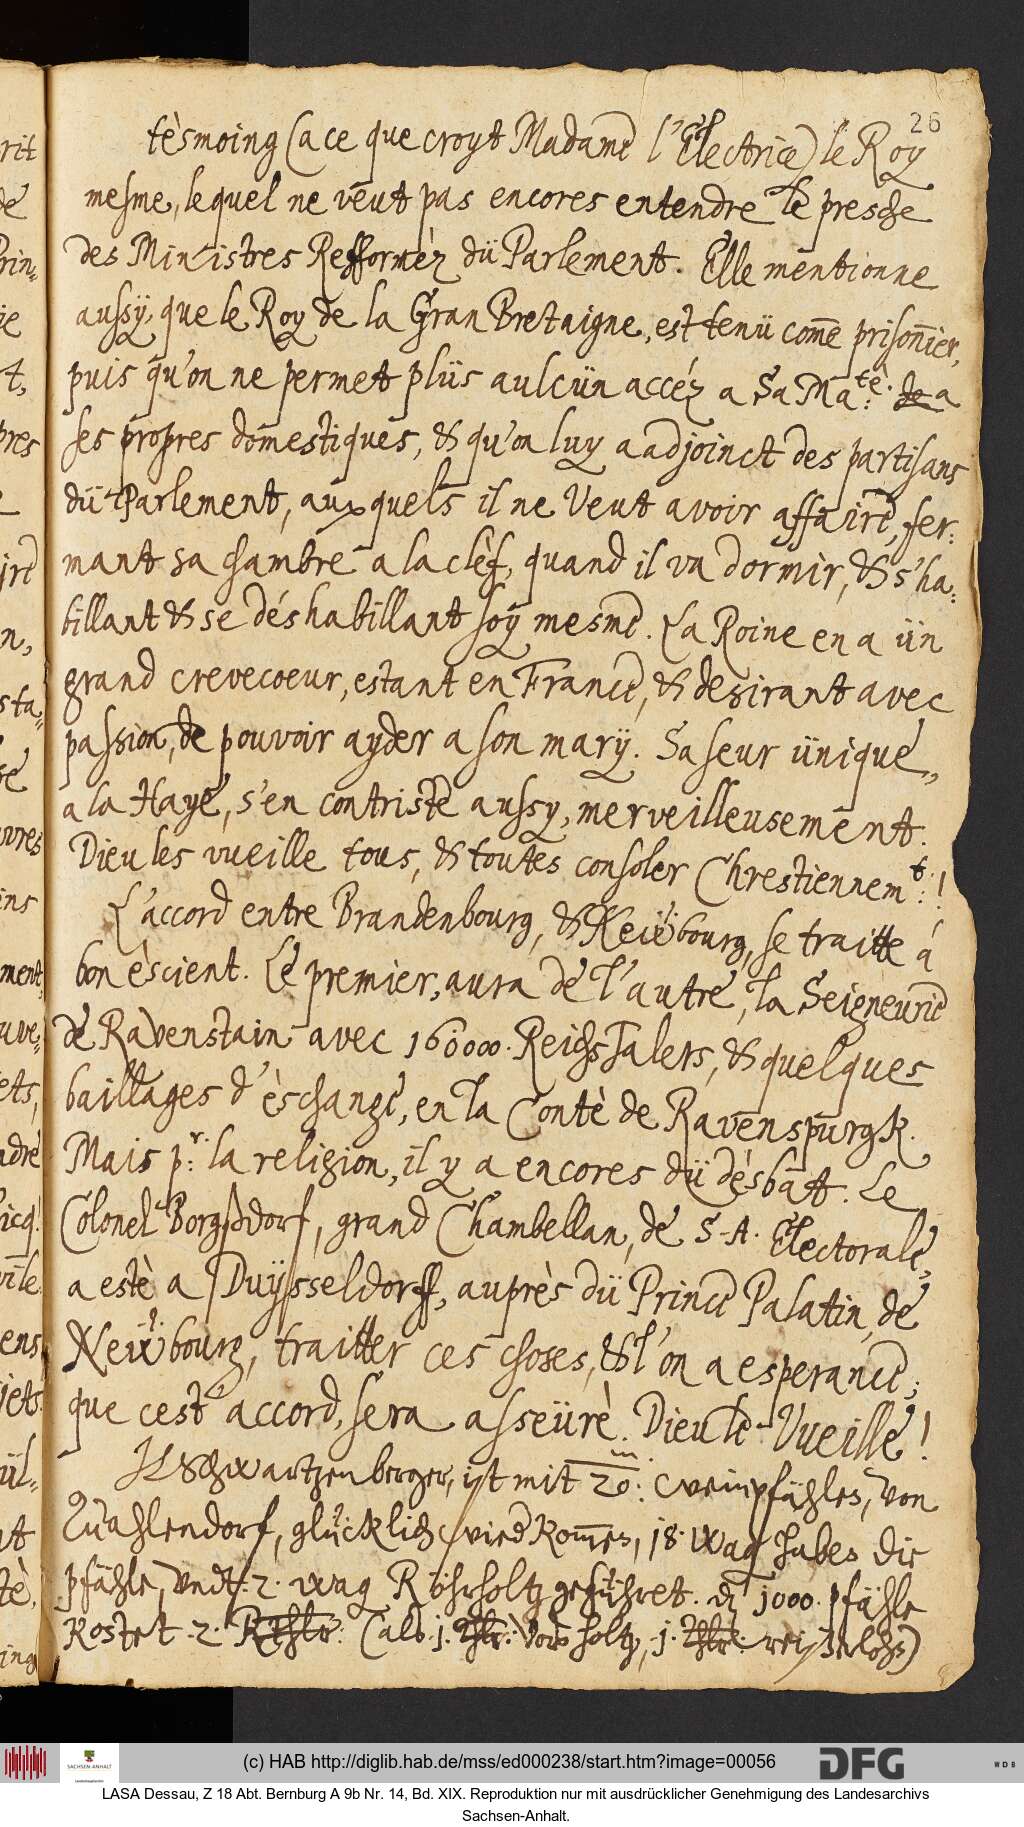 26
tèsmoing (a ce que croyt Madame l'Electrice) le Roy
mesme, lequel ne veut pas encores entendre le presche
des Ministres Refformèz dü Parlement. Elle mentionne
aussÿ, que le Roy de la Gran Bretaigne, est tenü com̅e prison̅ier,
puis qu'on ne permet plüs aulcün accéz a Sa Ma:tè. de a
ses propres domestiques, & qu'on luy a adjoinct des partisans
dü Parlement, auxquels il ne veut avoir affaire, fer:
mant sa chambre a la clèf, quand il va dormir, & s'ha:
billant & se déshabillant soÿ mesme. La Roine en a ün
grand crevecoeur, estant en France, & desirant avec
passion, de pouvoir ayder a son marÿ. Sa seur ünique,
a la Haye, s'en contriste aussy, merveilleusement.
Dieu les vueille tous, & toutes consoler Chrestiennem:t!
L'accord entre Brandenbourg, & Neŵbourg, se traitte á
bon èscient. Le premier, aura de l'autre, la Seigneurie
de Ravenstain avec 160000. ReichsTalers, & quelques
baillages d'èschange, en la Contè de Ravenspurgk.
Mais p:r la religion, il y a encores dü dèsbatt. Le
Colonel Borgßdorf, grand Chambellan, de S. A. Electorale,
a estè a Duÿsseldorff, auprès dü Prince Palatin, de
Newbourg, traitter ces choses, & l'on a esperance,
que cest accord, sera asseürè. Dieu le Vueille!
H Schwartzenberger, ist mit 20: weinpfählen, von
Zu Ahlendorf, glücklich wiederkom̅en, 18. wag haben die
pfähle, vndt 2. wag Röhrholtz geführet. die 1000. pfähle
kostet .2. Rthlr: (als .1. Thlr: vors holtz, .1. Thlr: